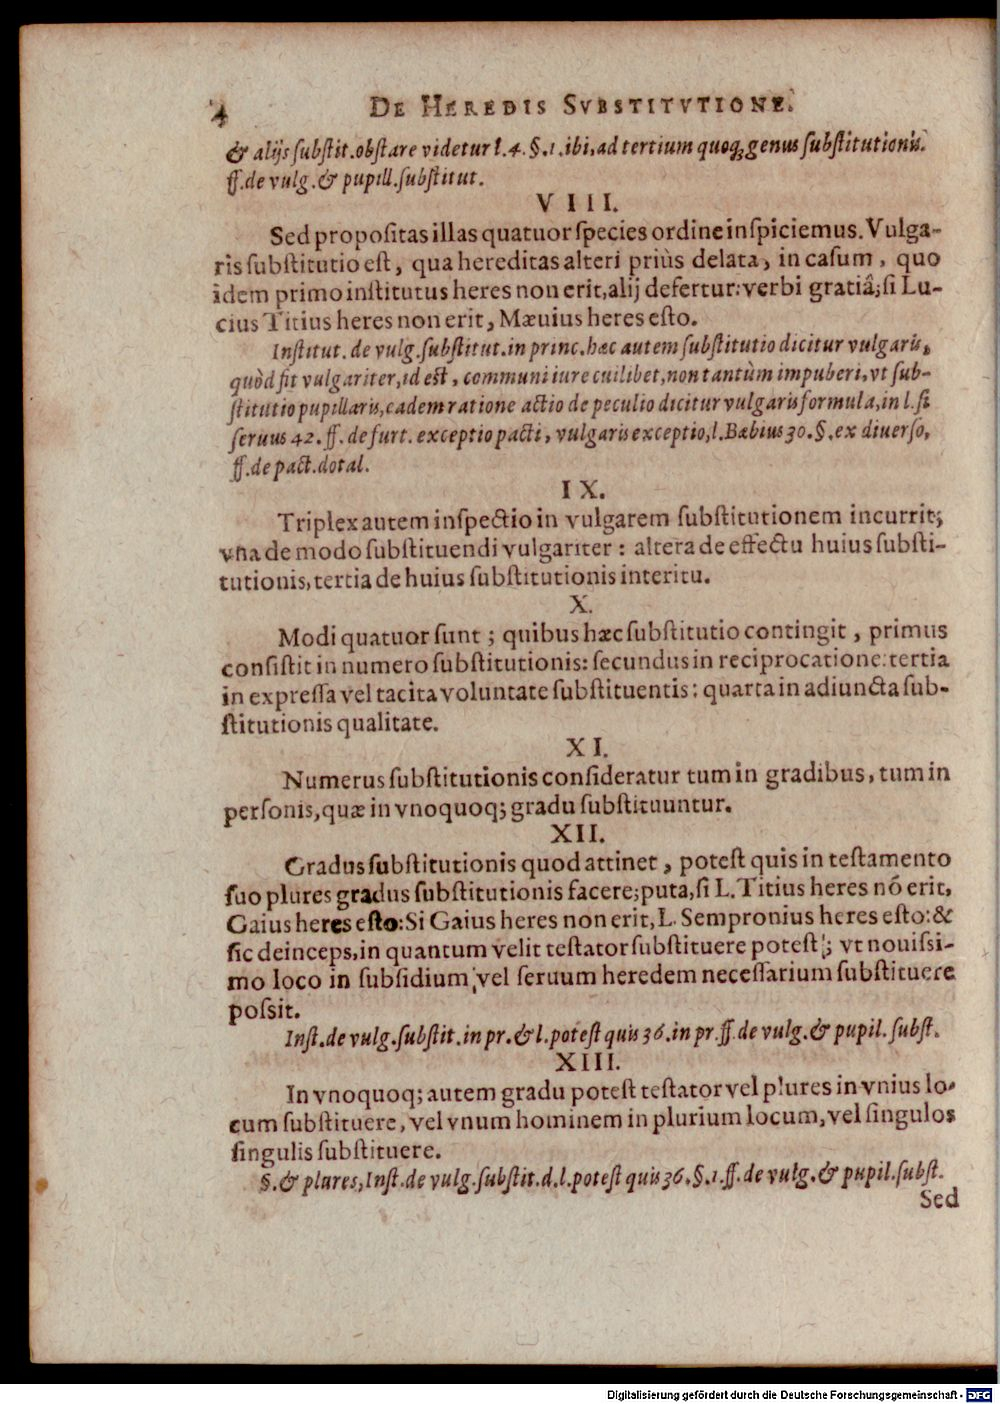 4 DE HEREDIS SVBSTITVTIONE.
& alijs ſubſtit. obſtare videtur l. 4. §. 1. ibi, ad tertium quoq; genus ſubſtitutionis.
ff. de vulg. & pupill. ſubſtitut.
VIII.
Sed propoſitas illas quatuor ſpecies ordine inſpiciemus. Vulga-
ris ſubſtitutio eſt, qua hereditas alteri priùs delata, in caſum, quo
idem primo inſtitutus heres non erit, alij defertur: verbi gratiâ; ſi Lu-
cius Titius heres non erit, Mævius heres eſto.
Inſtitut. de vulg. ſubſtitut. in princ. hæc autem ſubſtitutio dicitur vulgaris,
quòd fit vulgariter, id eſt, communi iure cuilibet, non tantùm impuberi, vt ſub-
ſtitutio pupillaris, eadem ratione actio de peculio dicitur vulgaris formula, in l. ſi
ſeruus 42. ff. de furt. exceptio pacti, vulgaris exceptio, l. Bæbius 30. §. ex diuerſo,
ff. de pact. dotal.
IX.
Triplex autem inſpectio in vulgarem ſubſtitutionem incurrit;
vna de modo ſubſtituendi vulgariter: altera de effectu huius ſubſti-
tutionis, tertia de huius ſubſtitutionis interitu.
X.
Modi quatuor ſunt; quibus hæc ſubſtitutio contingit, primus
conſiſtit in numero ſubſtitutionis: ſecundus in reciprocatione: tertia
in expreſſa vel tacita voluntate ſubſtituentis: quarta in adiuncta ſub-
ſtitutionis qualitate.
XI.
Numerus ſubſtitutionis conſideratur tum in gradibus, tum in
perſonis, quæ in vnoquoq; gradu ſubſtituuntur.
XII.
Gradus ſubſtitutionis quod attinet, poteſt quis in teſtamento
ſuo plures gradus ſubſtitutionis facere; puta, ſi L. Titius heres nō erit,
Gaius heres eſto: Si Gaius heres non erit, L. Sempronius heres eſto: &
ſic deinceps, in quantum velit teſtator ſubſtituere poteſt; vt nouiſſi-
mo loco in ſubſidium, vel ſeruum heredem neceſſarium ſubſtituere
poſsit.
Inſt. de vulg. ſubſtit. in pr. & l. poteſt quis 36. in pr. ff. de vulg. & pupil. ſubſt.
XIII.
In vnoquoq; autem gradu poteſt teſtator vel plures in vnius lo-
cum ſubſtituere, vel vnum hominem in plurium locum, vel ſingulos
ſingulis ſubſtituere.
§. & plures, Inſt. de vulg. ſubſtit. d. l. poteſt quis 36. §. 1. ff. de vulg. & pupil. ſubſt.
Sed
Digitalisierung gefördert durch die Deutsche Forschungsgemeinschaft - DFG